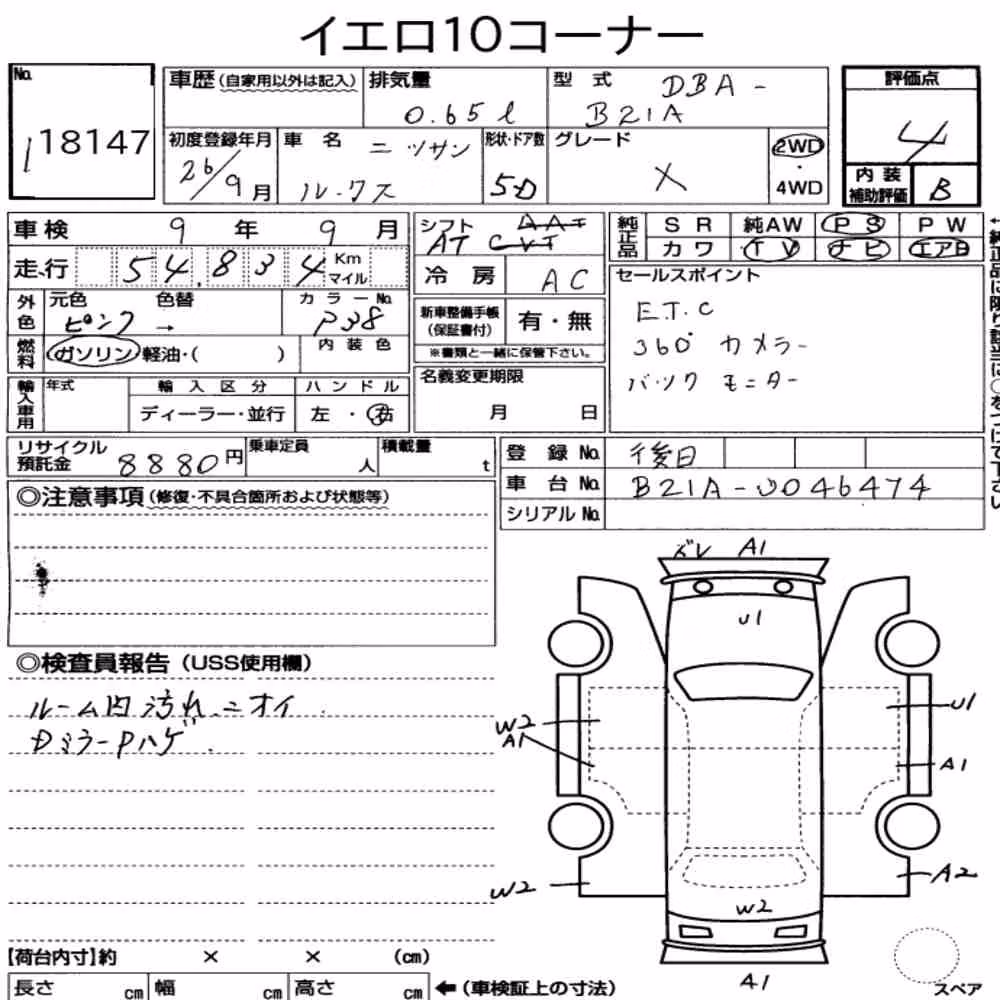 イエロ10コーナー
No. 118147
車歴(自家用以外は記入) 排気量 0.65ℓ 型式 DBA-B21A
評価点 4
初度登録年月 26/9月 車名 ニッサン ルークス 形状・ドア数 5D グレード X 2WD・4WD
内装補助評価 B
車検 9年9月 シフト AT
純正品 SR 純AW PS PW
カワ TV ナビ エアB
走行 54,834 Km マイル 冷房 AC
セールスポイント
E.T.C
360°カメラー
バックモニター
外色 元色 ピンク → 色替 カラーNo. P38
新車整備手帳(保証書付) 有・無
※書類と一緒に保管下さい。
燃料 ガソリン・軽油・( ) 内装色
名義変更期限 月 日
輸入車用 年式 輸入区分 ハンドル
ディーラー・並行 左・右
リサイクル預託金 8880円 乗車定員 人 積載量 t
登録No. 後日
車台No. B21A-0046474
シリアルNo.
◎注意事項(修復・不具合箇所および状態等)
◎検査員報告(USS使用欄)
ルーム内汚れ、ニオイ
DミラーPハゲ
ズレ A1
U1
W2 A1
U1
A1
W2
A2
W2
A1
スペア
【荷台内寸】約 × × (cm)
長さ cm 幅 cm 高さ cm ←(車検証上の寸法)